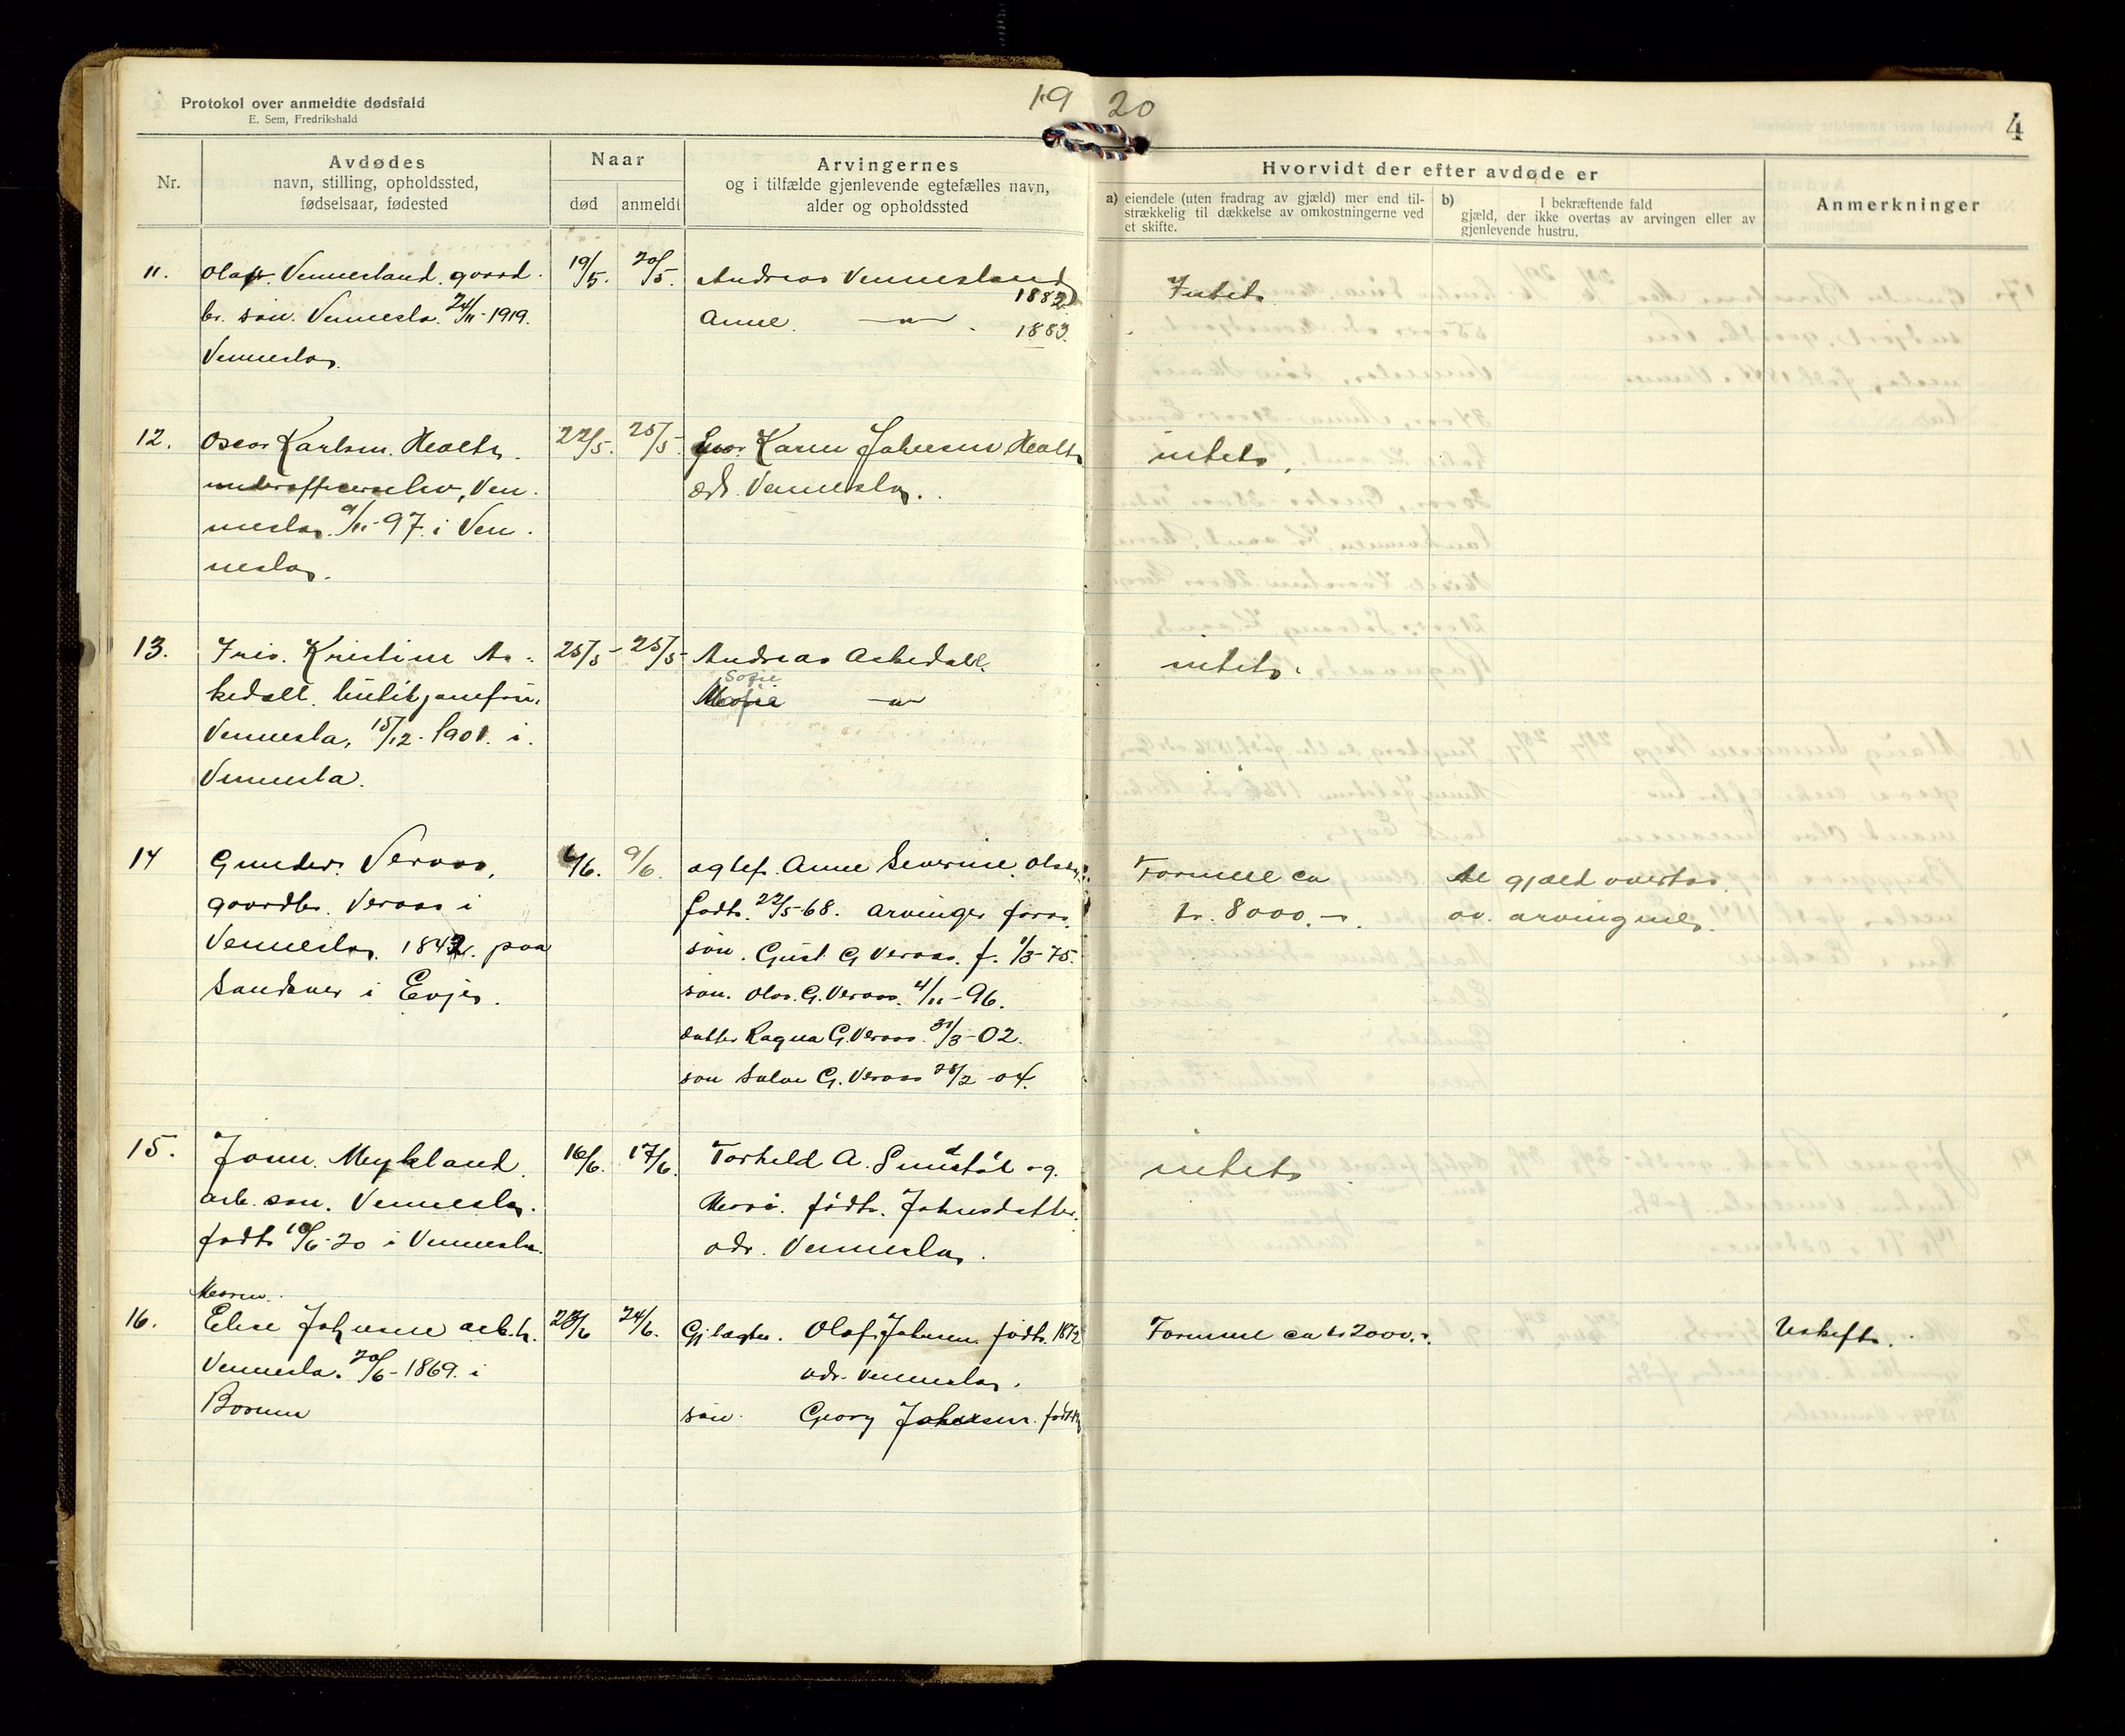 Protokol over anmeldte dødsfald
E. Sem, Fredrikshald
19 20
4
Nr.
Avdødes
navn, stilling, opholdssted,
fødselsaar, fødested
Naar
død
anmeldt
Arvingernes
og i tilfælde gjenlevende egtefælles navn,
alder og opholdssted
Hvorvidt der efter avdøde er
a) eiendele (uten fradrag av gjæld) mer end til-
strækkelig til dækkelse av omkostningerne ved
et skifte.
b) I bekræftende fald
gjæld, der ikke overtas av arvingen eller av
gjenlevende hustru.
Anmerkninger
11. Olaf Vennesland gaard 19/5. 20/5. Andreas Vennesland 1882 Intet
br. søn. Vennesla. 24/11-1919. Anne — " — 1883.
Vennesla
12. Oscar Karlsen 22/5. 25/5 Karen Johnsen intet
underofficerselev, Ven- adr. Vennesla.
nesla. 9/11-97 i Ven-
nesla.
13. Kristine As- 25/5- 25/5- Andreas Askedall. intet.
kedall. Sofie — " —
Vennesla, 15/12-1901. i
Vennesla.
14 Gunder Veraas, 6/6. 9/6. egtef. Anne Severine Formue ca al gjæld overtas
gaardbr. Veraas i født 22/5-68. arvinger kr. 8000.- av arvingene
Vennesla 1842. paa søn. Gust. G Veraas. f. 1/3-75.
i Evje. søn. Olav. G. Veraas. 4/11-96.
datter Ragna G. Veraas. 31/3-02.
søn Salve G. Veraas 28/2-04.
15. Mykland 16/6. 17/6. Torkeld A. og intet
arb. søn. Vennesla. født Johnsdatter.
født 10/6-20 i Vennesla. adr. Vennesla.
Maren
16. Elise Johnsen arb.h. 23/6 24/6. Olaf Johnsen født. 1872 Formue ca kr 2000.- Uskifte.
Vennesla. 20/6-1869. i adr. Vennesla.
søn. Georg Johnsen. født